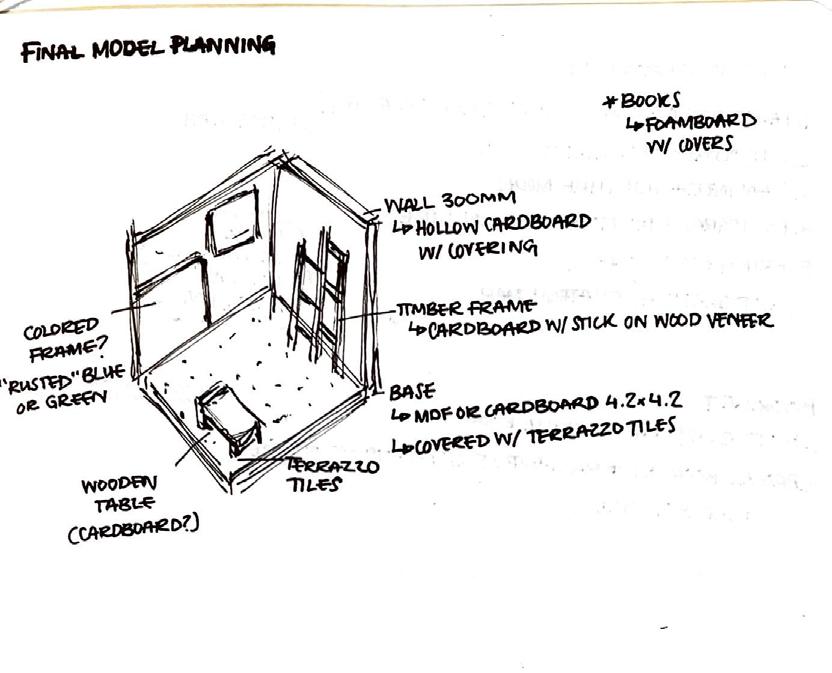 FINAL MODEL PLANNING
* BOOKS
↳ FOAMBOARD
W/ COVERS
WALL 300MM
↳ HOLLOW CARDBOARD
W/ COVERING
TIMBER FRAME
↳ CARDBOARD W/ STICK ON WOOD VENEER
COLORED
FRAME?
"RUSTED" BLUE
OR GREEN
BASE
↳ MDF OR CARDBOARD 4.2x4.2
↳ COVERED W/ TERRAZZO TILES
TERRAZZO
TILES
WOODEN
TABLE
(CARDBOARD?)